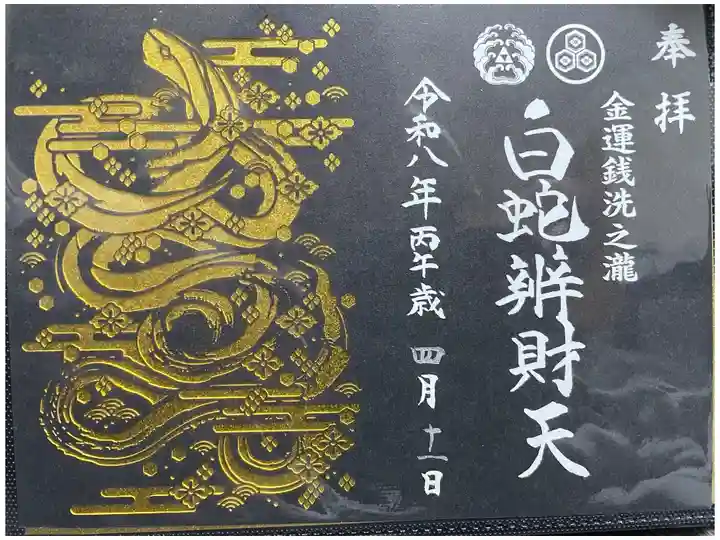 奉拝
金運銭洗之瀧
白蛇辨財天
令和八年丙午歳 四月十一日